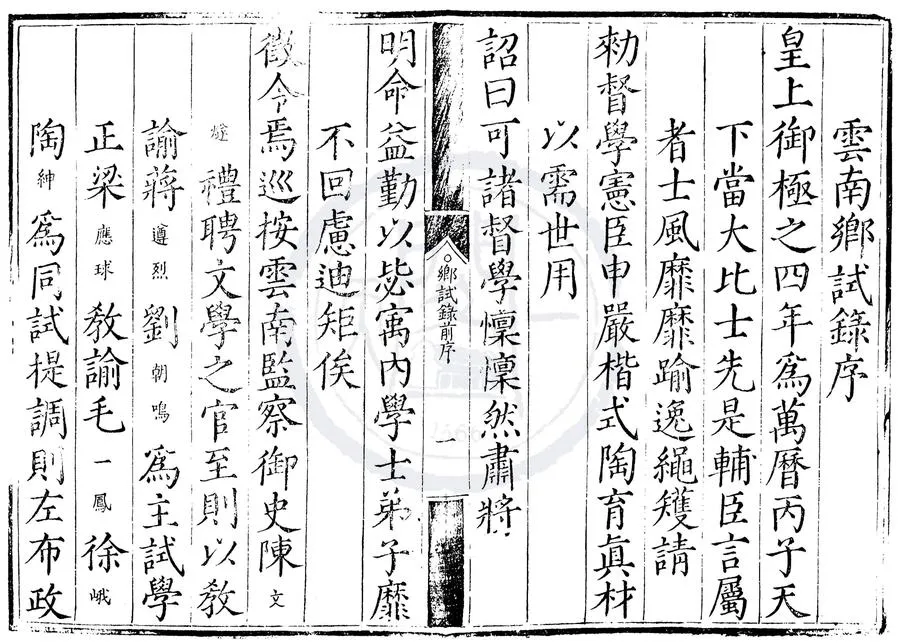 雲南鄉試錄序
皇上御極之四年爲萬曆丙子天
下當大比士先是輔臣言屬
者士風靡靡踰逸繩矱請
勑督學憲臣申嚴楷式陶育真材
以需世用
詔曰可諸督學懍懍然肅將
鄉試錄前序 一
明命益勤以毖寓內學士弟子靡
不回慮迪矩俟
徵令焉巡按雲南監察御史陳文
燧禮聘文學之官至則以教
諭蔣遵烈劉朝鳴爲主試學
正梁應球教諭毛一鳳徐峨
陶紳爲同試提調則左布政